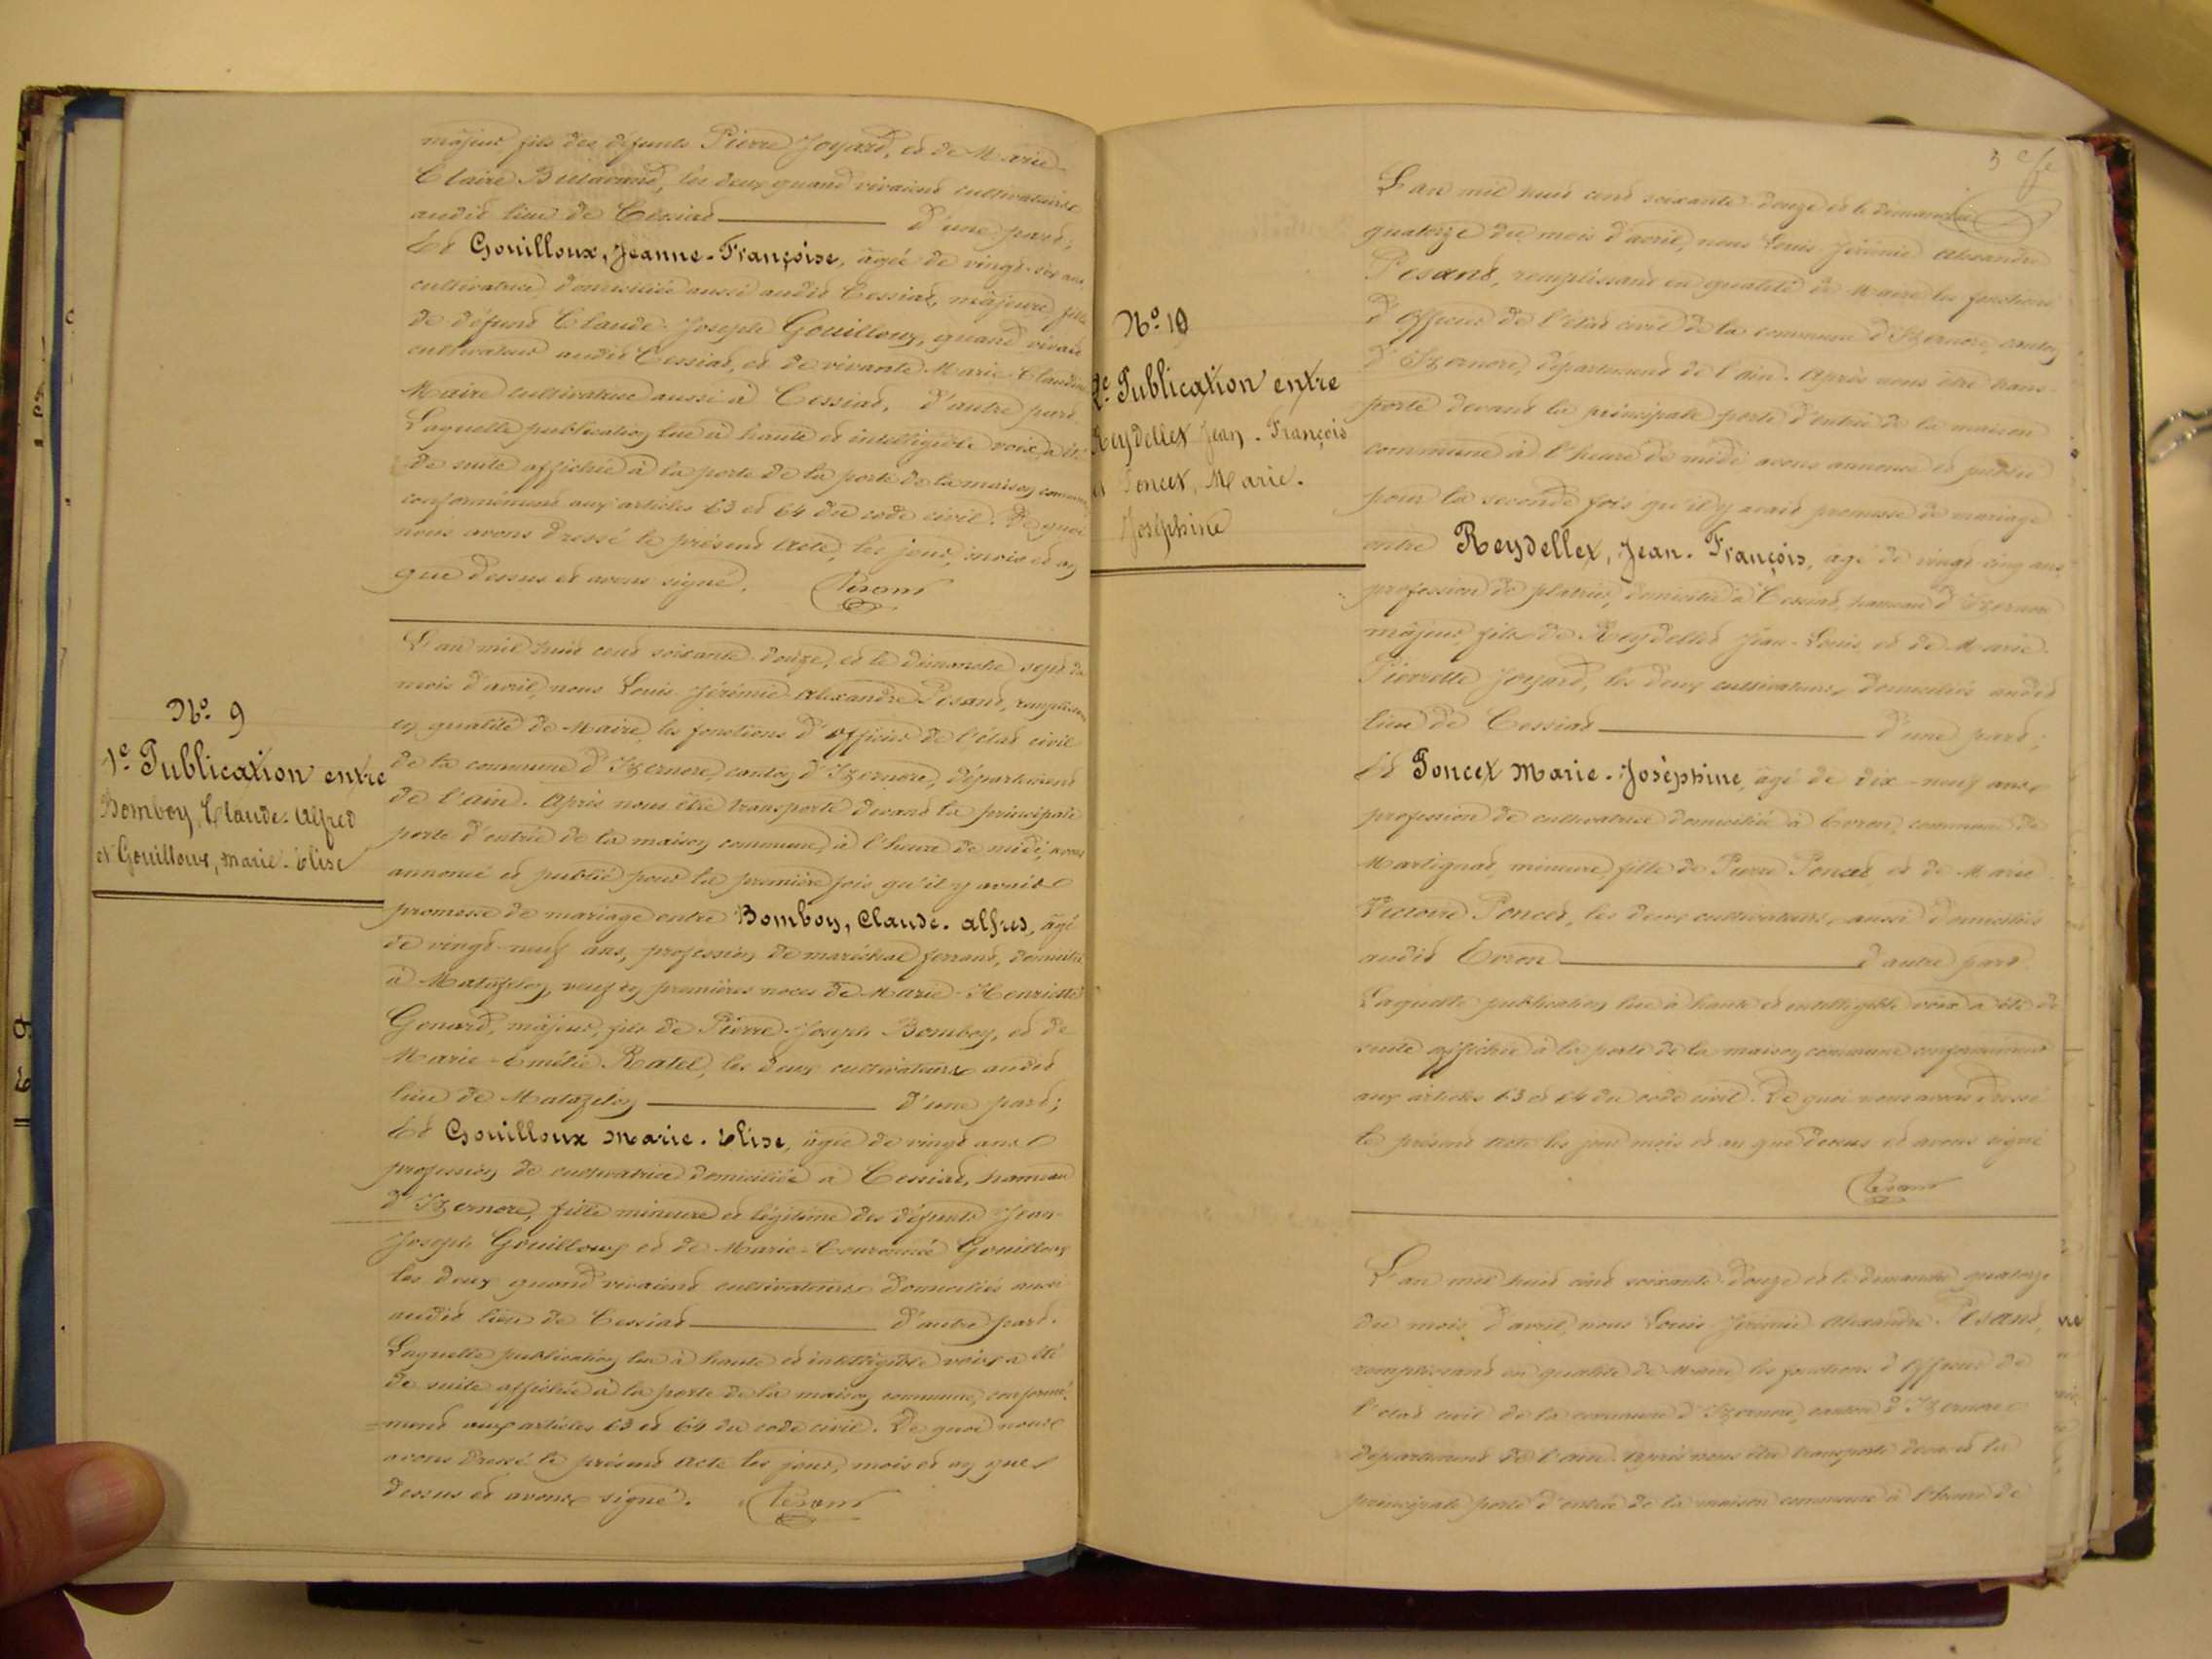 majeur fils des défunts Pierre Joyard, et de Marie
Claire Buidand, les deux quand vivaient cultivateurs
audit lieu de Cessiat d'une part;
Et Gouilloux, Jeanne-Françoise, âgée de vingt-six ans,
cultivatrice, domiciliée aussi audit Cessiat, majeure, fille
de défunt Claude-Joseph Gouilloux, quand vivait
cultivateur audit Cessiat, et de vivante Marie Claudine
Maire cultivatrice aussi à Cessiat, d'autre part
Laquelle publication lue à haute et intelligible voix, a été
de suite affichée à la porte de la porte de la maison commune
conformément aux articles 63 et 64 du code civil. De quoi
nous avons dressé le présent acte, les jour, mois et an
que dessus et avons signé. Pesant
No. 9
1e Publication entre
Bomboy, Claude-Alfred
et Gouilloux, Marie-Elise
L'an mil huit cent soixante-douze, et le dimanche sept du
mois d'avril, nous Louis-Jérémie-Alexandre Pesant, remplissant
en qualité de Maire, les fonctions d'officier de l'état civil
de la commune d'Izernore, canton d'Izernore, département
de l'ain. Après nous être transporté devant la principale
porte d'entrée de la maison commune, à l'heure de midi, avons
annoncé et publié pour la première fois qu'il y avait
promesse de mariage entre Bomboy, Claude-Alfred, âgé
de vingt-neuf ans, profession de maréchal ferrant, domicilié
à Matafelon, veuf en premières noces de Marie-Henriette
Genard, majeur, fils de Pierre-Joseph Bomboy, et de
Marie-Emélie Ratel, les deux cultivateurs audit
lieu de Matafelon d'une part;
Et Gouilloux Marie-Elise, âgée de vingt ans
profession de cultivatrice domiciliée à Cessiat, hameau
d'Izernore, fille mineure et légitime des défunts Jean-
Joseph Gouilloux et de Marie-Couronnée Gouilloux
les deux quand vivaient cultivateurs domiciliés aussi
audit lieu de Cessiat d'autre part.
Laquelle publication lue à haute et intelligible voix a été
de suite affichée à la porte de la maison commune, conformé-
=ment aux articles 63 et 64 du code civil. De quoi nous
avons dressé le présent acte les jour, mois et an que
dessus et avons signé. Pesant
No. 10
2e Publication entre
Reydellet Jean-François
et Poncet, Marie-
Joséphine
L'an mil huit cent soixante-douze et le dimanche
quatorze du mois d'avril, nous Louis-Jérémie Alexandre
Pesant, remplissant en qualité de Maire les fonctions
d'officier de l'état civil de la commune d'Izernore, canton
d'Izernore, département de l'ain. Après nous être trans-
porté devant la principale porte d'entrée de la maison
commune à l'heure de midi avons annoncé et publié
pour la seconde fois qu'il y avait promesse de mariage
entre Reydellet, Jean-François, âgé de vingt-cinq ans
profession de plâtrier, domicilié à Cessiat, hameau d'Izernore
majeur, fils de Reydellet Jean-Louis et de Marie-
Pierrette Joyard, les deux cultivateurs domiciliés audit
lieu de Cessiat d'une part;
Et Poncet Marie-Joséphine, âgé de dix-neuf ans
profession de cultivatrice domiciliée à Evron, commune de
Martignat, mineure, fille de Pierre Poncet et de Marie
Victoire Poncet, les deux cultivateurs, aussi domiciliés
audit Evron d'autre part
Laquelle publication lue à haute et intelligible voix a été de
suite affichée à la porte de la maison commune conformément
aux articles 63 et 64 du code civil. De quoi nous avons dressé
le présent acte les jour mois et an que dessus et avons signé
Pesant
L'an mil huit cent soixante-douze et le dimanche quatorze
du mois d'avril, nous Louis-Jérémie-Alexandre Pesant,
remplissant en qualité de Maire les fonctions d'officier de
l'état civil de la commune d'Izernore, canton d'Izernore
département de l'ain. Après nous être transporté devant la
principale porte d'entrée de la maison commune à l'heure de